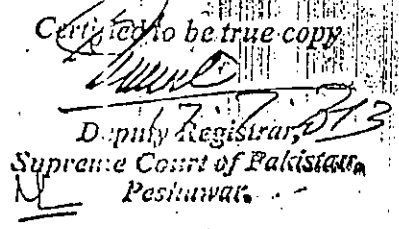 Certified to be true copy
Deputy Registrar,
Supreme Court of Pakistan,
Peshawar.